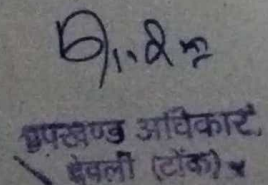 उपखण्ड अधिकारी,
देवली (टोंक)